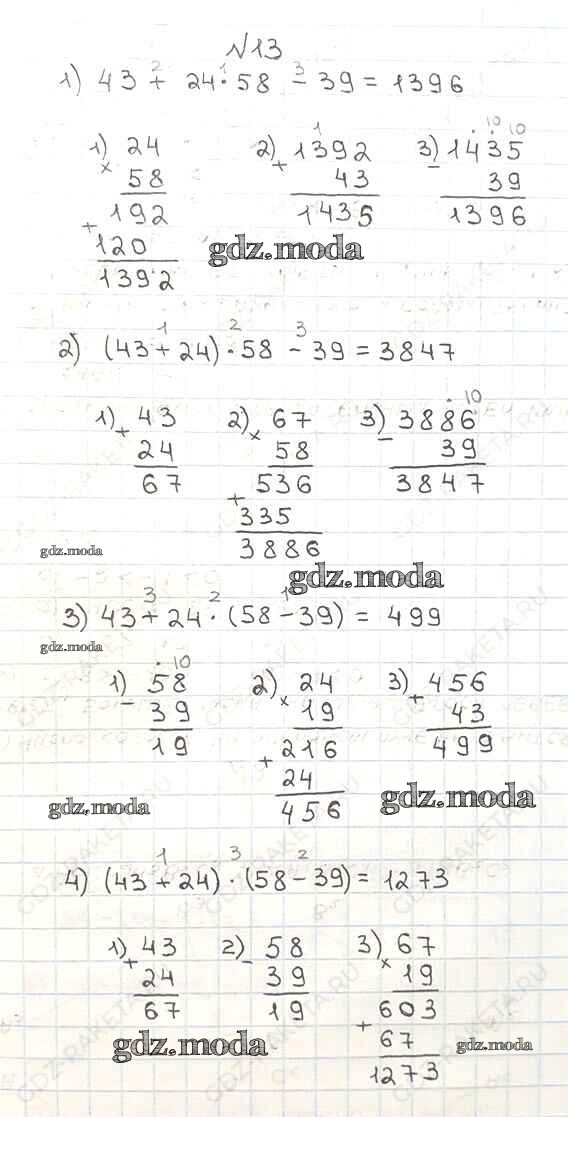 №13
1) 43 + 24 · 58 − 39 = 1396
2 1 3
1) 24 × 58
192 + 120
1392
2) 1392 + 43
1435
3) 1435 − 39
1396
gdz.moda
2) (43 + 24) · 58 − 39 = 3847
1 2 3
1) 43 + 24
67
2) 67 × 58
536 + 335
3886
3) 3886 − 39
3847
gdz.moda
gdz.moda
3) 43 + 24 · (58 − 39) = 499
3 2 1
gdz.moda
1) 58 − 39
19
2) 24 × 19
216 + 24
456
3) 456 + 43
499
gdz.moda
gdz.moda
4) (43 + 24) · (58 − 39) = 1273
1 3 2
1) 43 + 24
67
2) 58 − 39
19
3) 67 × 19
603 + 67
1273
gdz.moda
gdz.moda